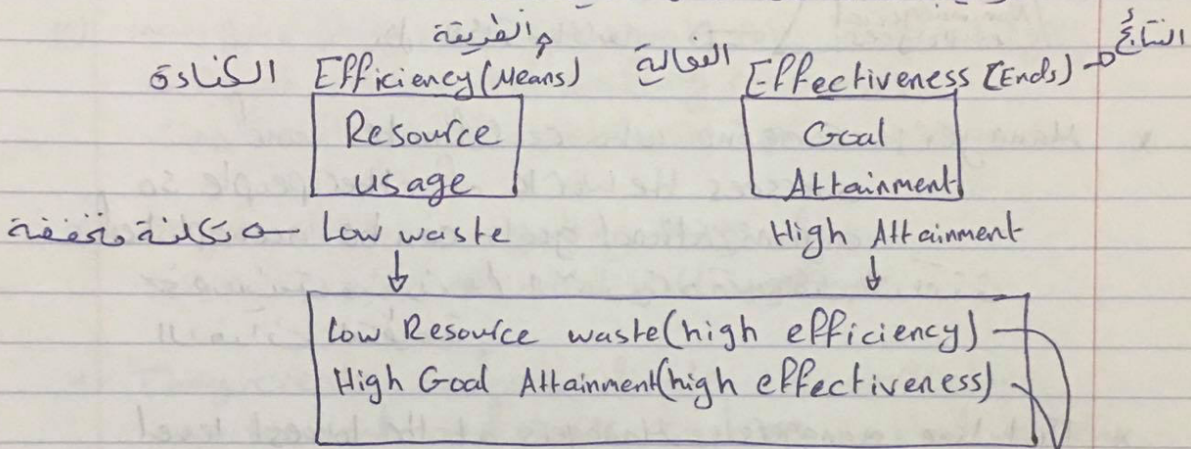 والطريقة
النتائج
الكفاءة Efficiency (Means) الفعالية Effectiveness (Ends)
Resource Goal
usage Attainment
تكلفة منخفضة Low waste High Attainment
Low Resource waste (high efficiency)
High Goal Attainment (high effectiveness)